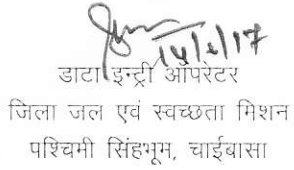 14/1/17
डाटा इन्ट्री ऑपरेटर
जिला जल एवं स्वच्छता मिशन
पश्चिमी सिंहभूम, चाईबासा